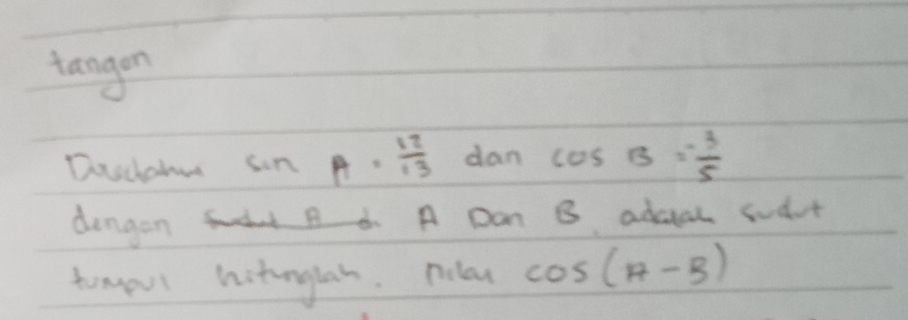 tangen
Diketahui sin A = 12/13 dan cos B = -3/5
dengan A Dan B adalah sudut
tumpul hitunglah. nilai cos (A - B)